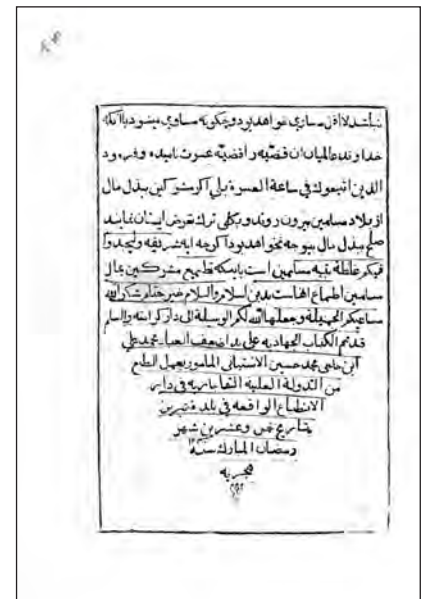 نباشد لااقل مساوی خواهد بود و چگونه مساوی میشود با آنکه
خداوند عالمیان آن قضیه را قضیه عسرت نامیده و فرمود
الذین اتبعوك فی ساعة العسرة بلی اگر مشرکین ببذل مال
از بلاد مسلمین بیرون روند و بکلی ترك تعرض ایشان نمایند
صلح ببذل مال بیوجه نخواهد بود اگرچه آیه شریفه ولیجدوا
فیکم غلظة بقیه مسلمین است باینکه قطع طمع مشرکین بمال
مسلمین اطماع آنهاست بدین اسلام والسلام خیر ختام شکر الله
مساعیکم الجمیلة وجعلها الله لکم الوسیلة الی دار کرامته والسلام
قد تم الکتاب الجهادیه علی ید اضعف العباد محمد علی
ابن حاجی محمد حسین الاشتیانی المامور بعمل الطبع
من الدولة العلیة القاجاریه فی دار
الانطباع الواقعه فی بلد تبریز
بتاریخ خمس وعشرین شهر
رمضان المبارك سنة
هجریه